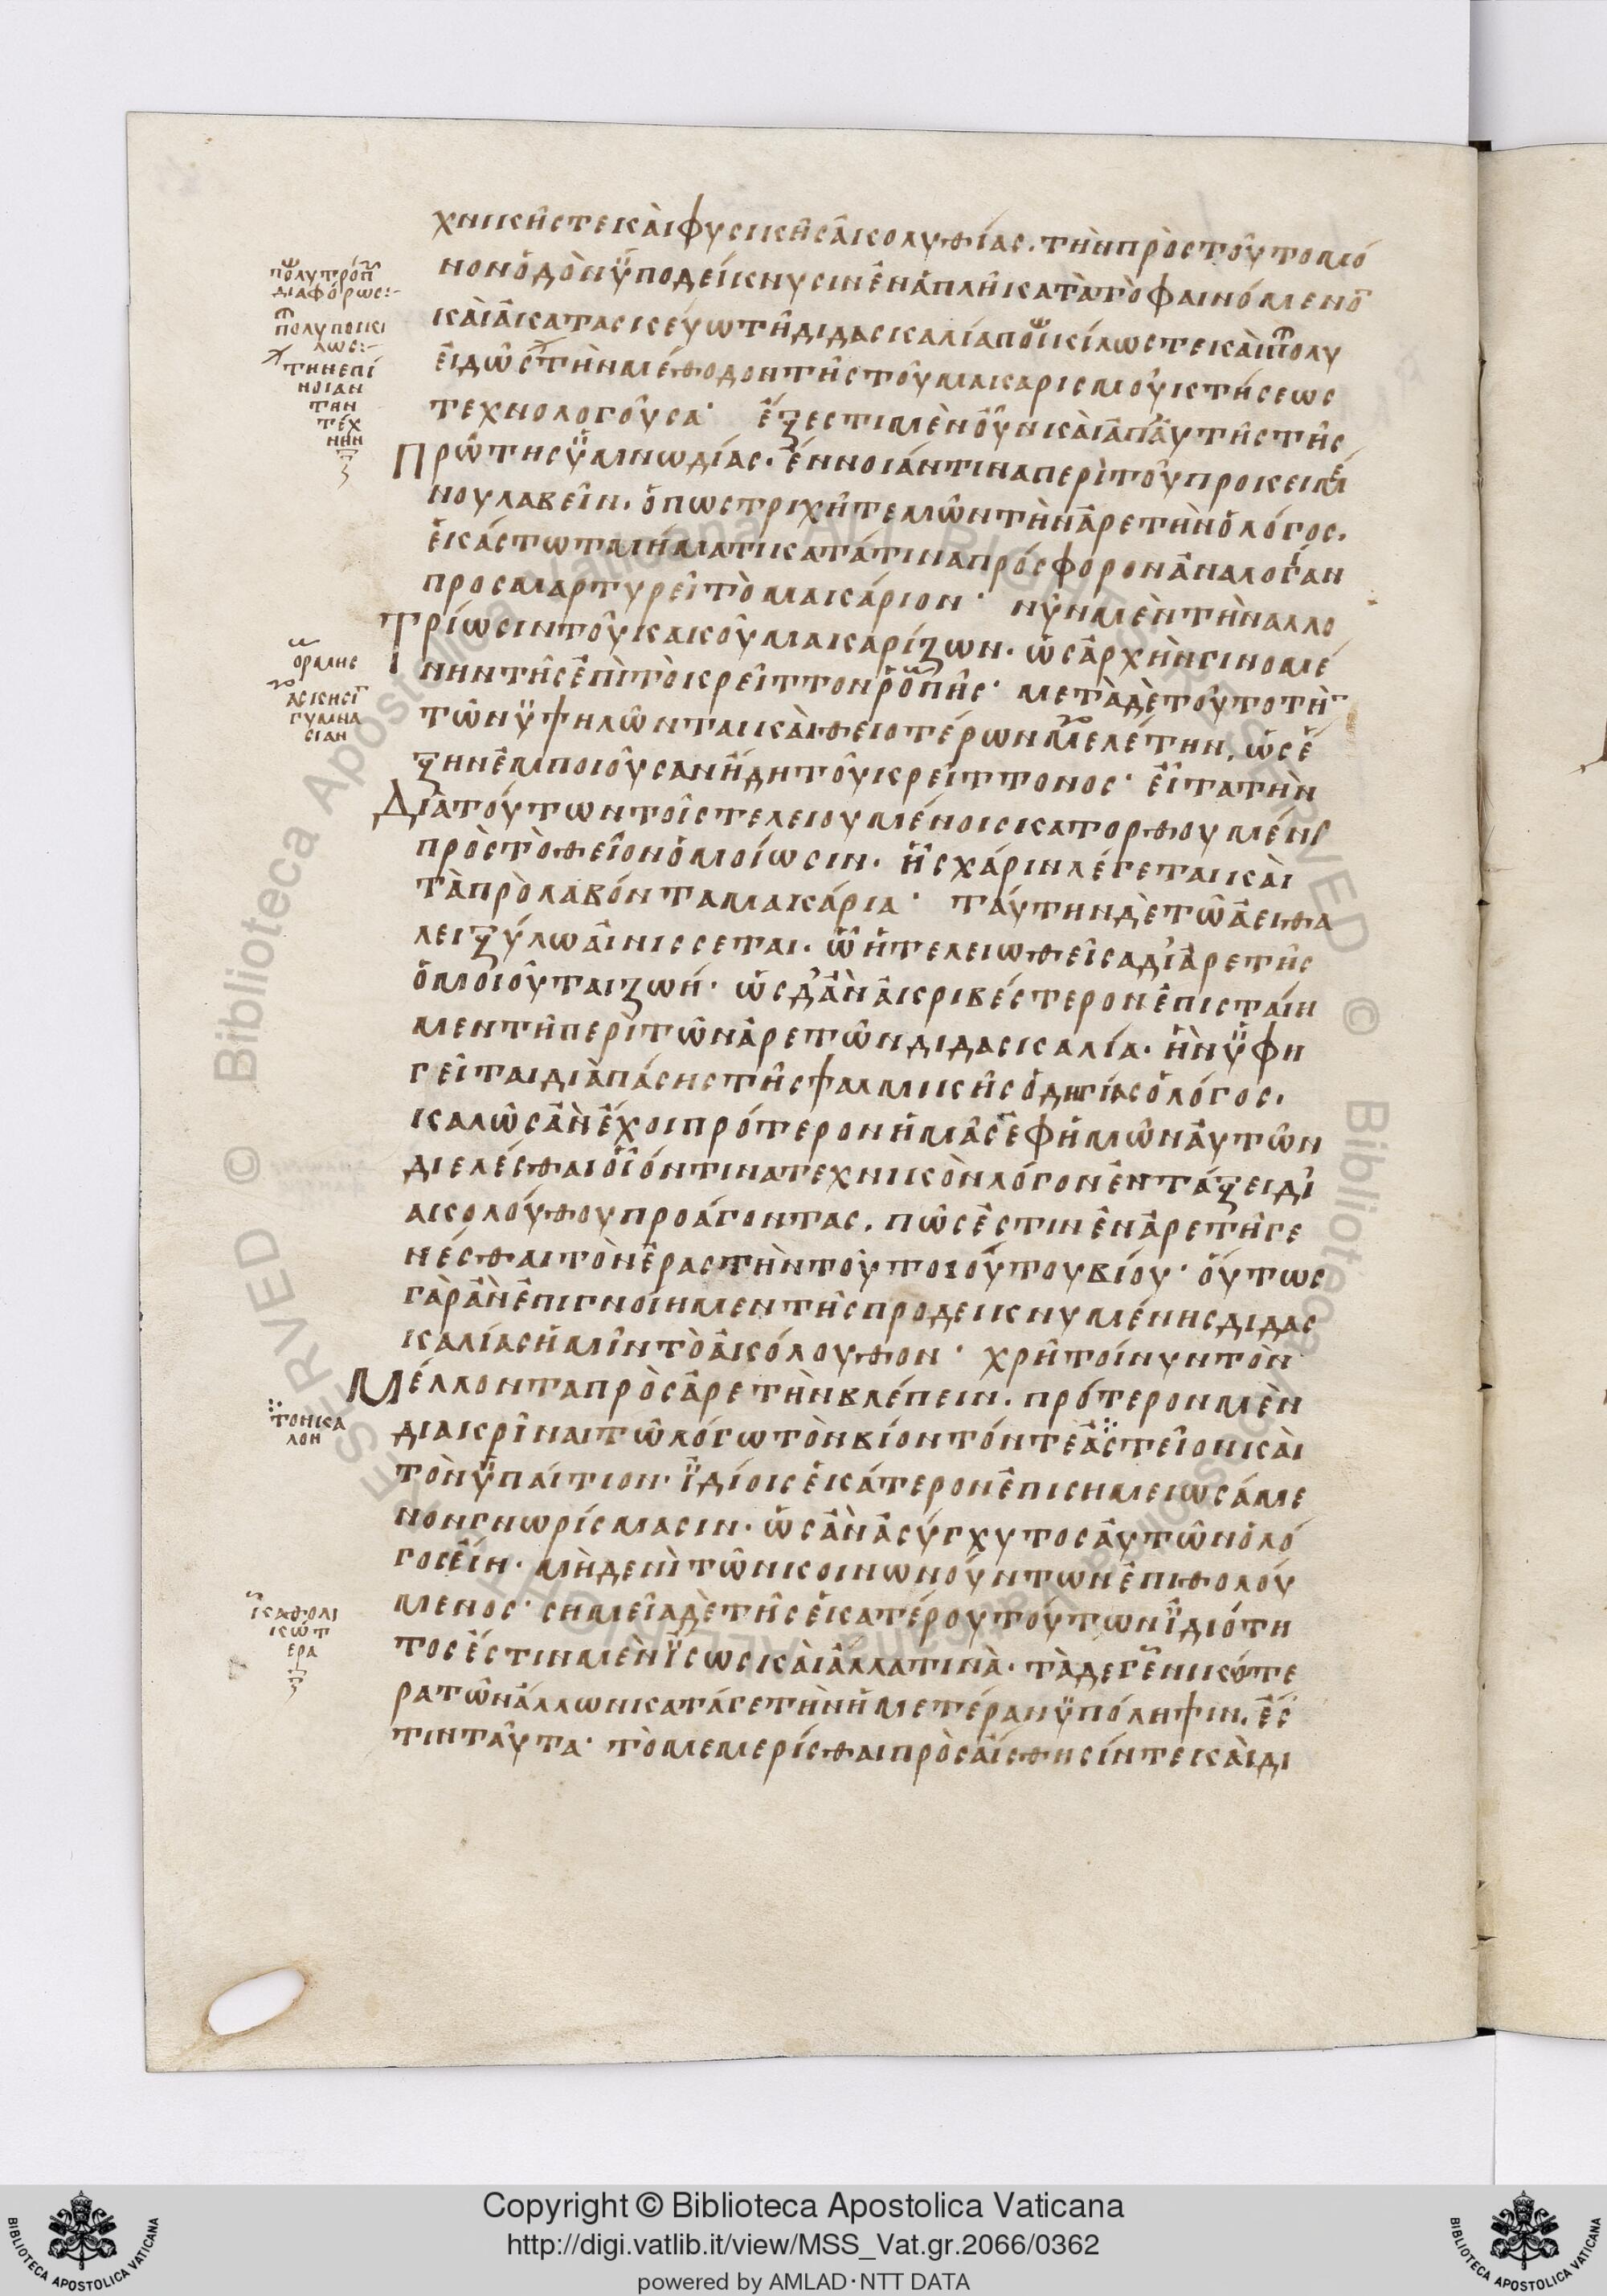 χνικῆς τε καὶ φυσικῆς ἀκολυθίας. τὴν πρὸς τοῦτο μό
νον ὁδὸν ὑποδείκνυσιν ἐν ἁπλῇ κατὰ τὸ φαινόμενο
καὶ ἀκατασκεύω τῆ διδασκαλία ποικίλως τε καὶ πολυ
ειδῶς τὴν μέθοδον τῆς τοῦ μακαρισμοῦ κτήσεως
τεχνολογοῦσα· ἔξεστι μὲν οὖν καὶ ἀπ' αὐτῆς τῆς
Πρώτης ὑμνωδίας. ἔννοιάν τινα περὶ τοῦ προκειμέ
νου λαβεῖν. ὅπως τριχῆ τεμὼν τὴν ἀρετὴν ὁ λόγος.
ἑκάστω τμήματι κατά τινα πρόσφορον ἀναλογίαν
προσμαρτυρεῖ τὸ μακάριον· νῦν μὲν τὴν ἀλλο
Τρίωσιν τοῦ κακοῦ μακαρίζων. ὡς ἀρχὴν γινομέ
νην τῆς ἐπὶ τὸ κρεῖττον ῥοπῆς· μετὰ δὲ τοῦτο τὴ
τῶν ὑψηλῶν τα καὶ θειοτέρων μελέτην. ὡς ἕ
ξιν ἐμποιοῦσαν ἤδη τοῦ κρείττονος· εἶτα τὴν
Διὰ τούτων τοῖς τελειουμένοις κατορθουμένη
πρὸς τὸ θεῖον ὁμοίωσιν. ἧς χάριν λέγεται καὶ
τὰ πρὸλαβόντα μακάρια· ταύτην δὲ τῶ ἀειθα
λεῖ ξύλω αἰνίσσεται. ὧ ἡ τελειωθεῖσα δι' ἀρετῆς
ὁμοιοῦται ζωή· ὡς δ' ἂν ἀκριβέστερον ἐπισταίη
μεν τῆ περὶ τῶν ἀρετῶν διδασκαλία. ἣν ὑφη
γεῖται διὰ πάσης τῆς ψαλμικῆς ὁδηγίας ὁ λόγος.
καλῶς ἂν ἔχοι πρότερον ἡμᾶς ἐφ ἡμῶν αὐτῶν
διελέσθαι οἷόν τινα τεχνικὸν λόγον ἐν τάξει δι
ακολούθου προάγοντας. πῶς ἐστιν ἐν ἀρετῆ γε
νέσθαι τὸν ἐραστὴν τοῦ τοιούτου βίου· οὕτως
γὰρ ἂν ἐπιγνοίημεν τῆς προδεικνυμένης διδασ
καλίας ἡμῖν τὸ ἀκόλουθον· χρῆ τοίνυν τὸν
Μέλλοντα πρὸς ἀρετὴν βλέπειν. πρότερον μὲν
διακρῖναι τῶ λόγω τὸν βίον τόν τε ἀστεῖον καὶ
τὸν ὑπαίτιον· ἰδίοις ἑκάτερον ἐπισημειωσάμε
νον γνωρίσμασιν. ὡς ἂν ἀσύγχυτος αὐτῶν ὁ λό
γος εἴη. μὴδενὶ τῶν κοινωνούντων ἐπιθολού
μενος· σημεῖα δὲ τῆς ἑκατέρου τούτων ἰδιότη
τος ἔστιν μὲν ἴσως καὶ ἄλλα τινὰ. τὰ δε γενικώτε
ρα τῶν ἄλλων κατά γε τὴν ἡμετέραν ὑπόληψιν. ἔσ
τιν ταῦτα· τὸ μεμερίσθαι πρὸς αἴσθησίν τε καὶ δι
πολυτρόπ
διαφόρως:-
πολυποικι
λως:-
την επί
νοιαν
την
τέχ
νην
ορμης
ασκησι
γυμνα
σιαν
τον κα
λον
καθολι
κώτ
ερα
Copyright © Biblioteca Apostolica Vaticana
http://digi.vatlib.it/view/MSS_Vat.gr.2066/0362
powered by AMLAD·NTT DATA
BIBLIOTECA APOSTOLICA VATICANA
BIBLIOTECA APOSTOLICA VATICANA